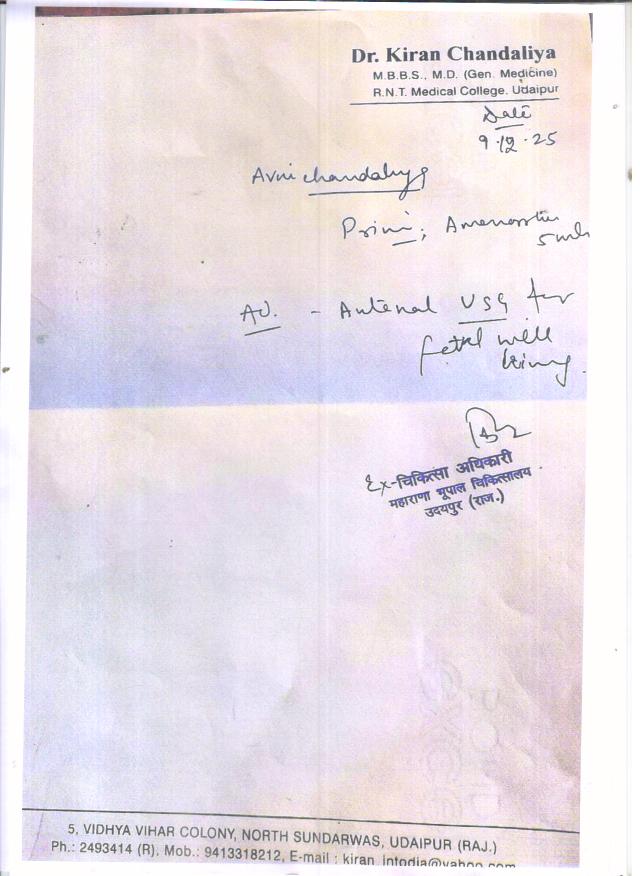 Dr. Kiran Chandaliya
M.B.B.S., M.D. (Gen. Medicine)
R.N.T. Medical College, Udaipur
Date
9.12.25
Avni Chandaliya
Primi; Amenorrhea
5 mth
Ad. - Antenal USG for
fetal well
being.
Ex-चिकित्सा अधिकारी
महाराणा भूपाल चिकित्सालय
उदयपुर (राज.)
5, VIDHYA VIHAR COLONY, NORTH SUNDARWAS, UDAIPUR (RAJ.)
Ph.: 2493414 (R), Mob.: 9413318212, E-mail : kiran_intodia@yahoo.com